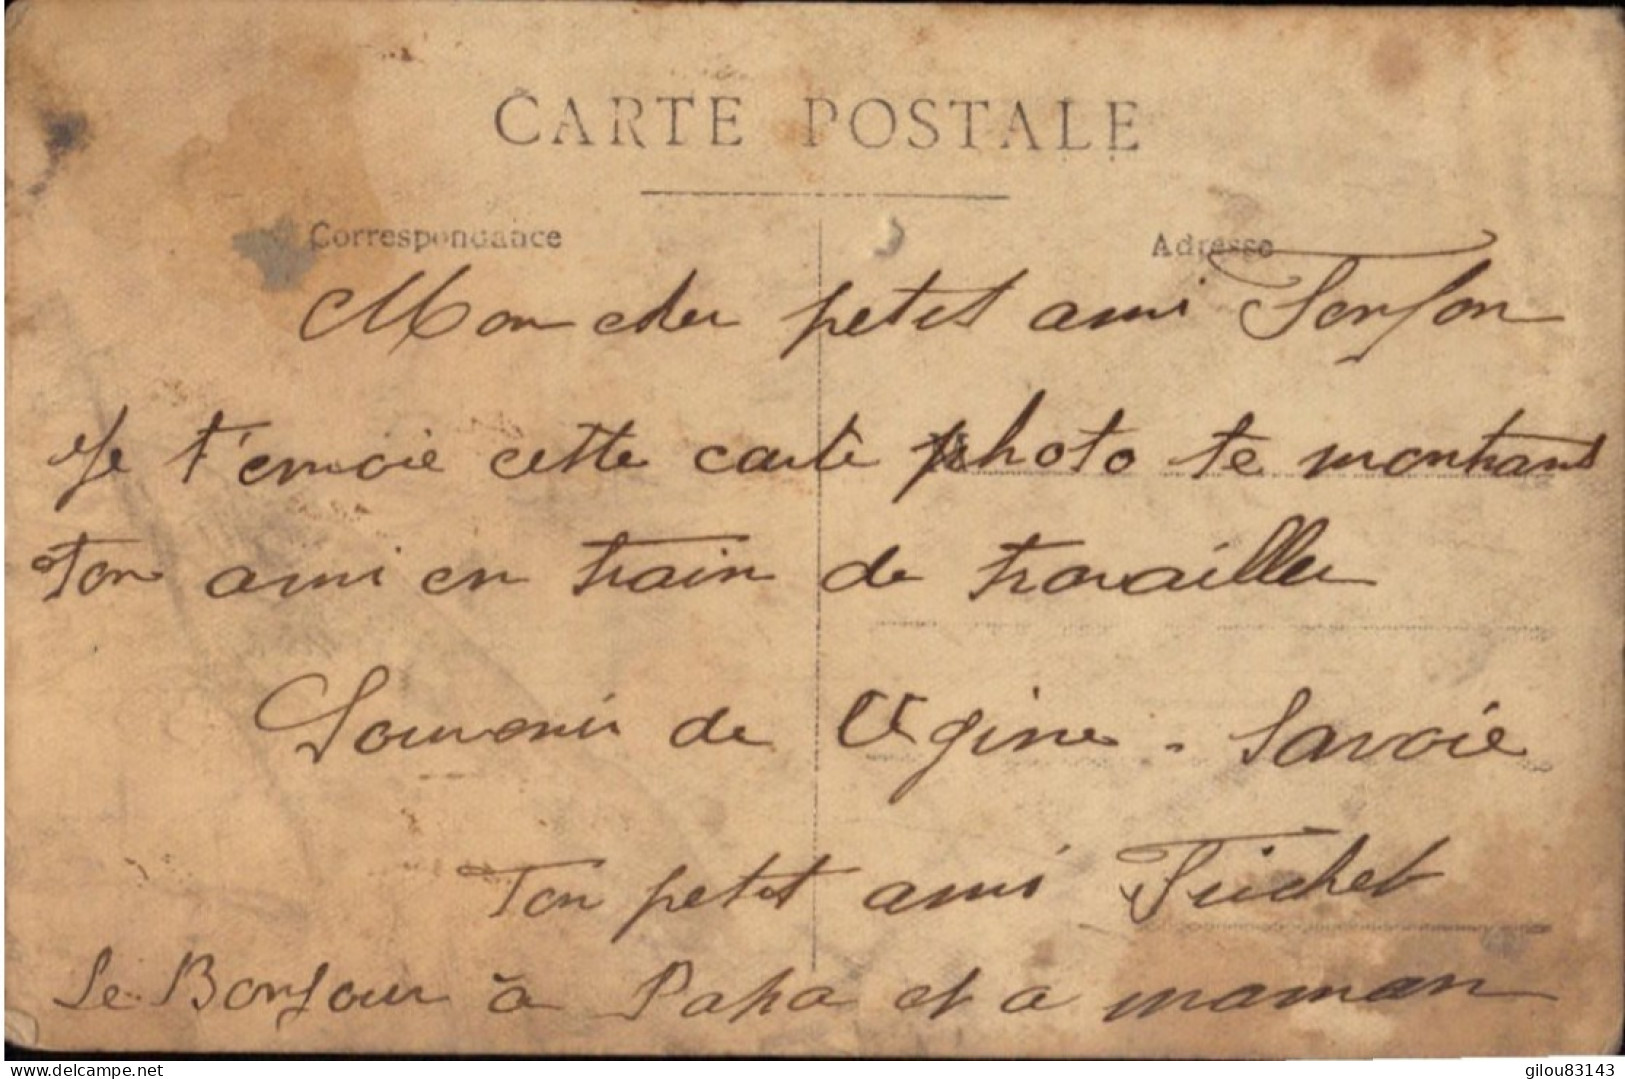 CARTE POSTALE
Correspondance Adresse
Mon cher petit ami Fonfon
Je t'envoie cette carte photo te montrant
ton ami en train de travailler
Souvenir de Ugine - Savoie
Ton petit ami
Le Bonjour à Papa et a maman
delcampe.net gilou83143